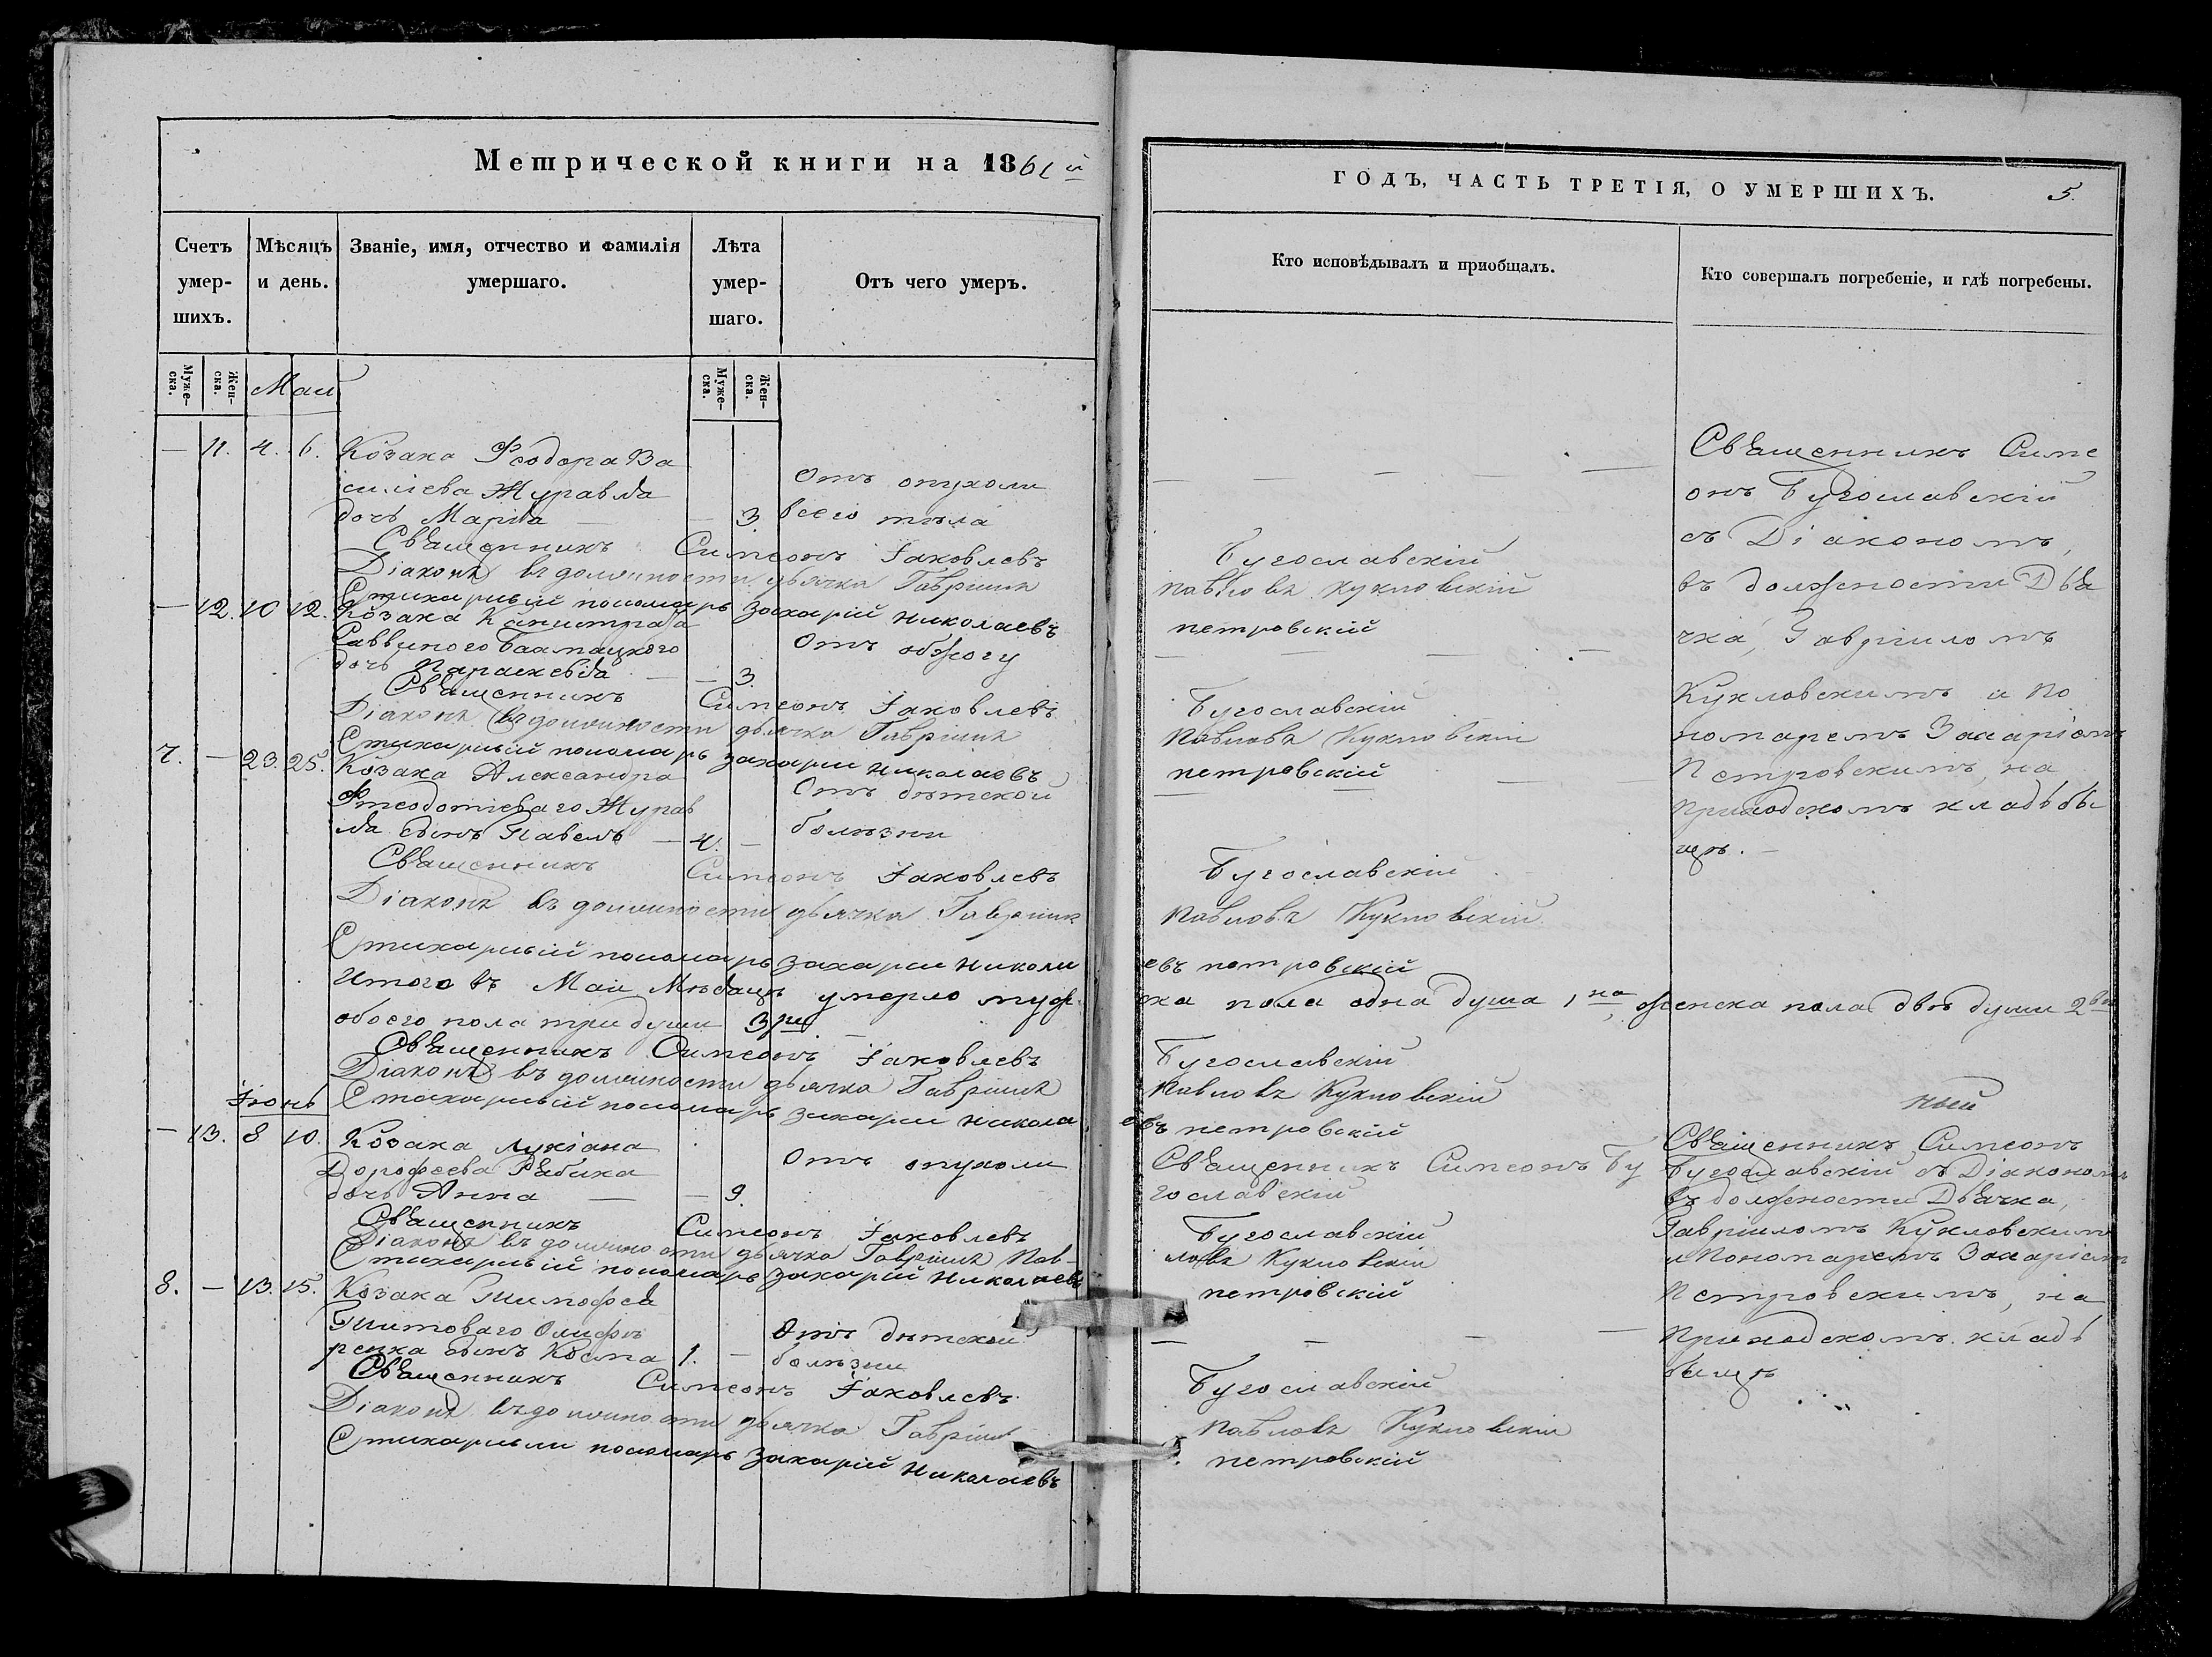 Метрической книги на 1861й
Счетъ умер-шихъ.
Мѣсяцъ и день.
Званіе, имя, отчество и фамилія умершаго.
Лѣта умер-шаго.
Отъ чего умеръ.
Муже-ска.
Жен-ска.
Май
Муже-ска.
Жен-ска.
— 11. 4. 6. Козака Ѳеодора Ва
силіева Журавля
дочь Марія — — 3.
Отъ опухоли
всего тѣла
Священникъ Симеонъ Іаковлевъ
Діаконъ въ должности дьячка Гавріилъ
Стихарный пономарь Захарій Николаевъ
— 12. 10 12. Козака Калистрата
Саввиного Бакмацкого
дочь Параскевія — — 3.
Отъ обжогу
Священникъ Симеонъ Іаковлевъ
Діаконъ въ должности дьячка Гавріилъ
Стихарный пономарь Захарій Николаевъ
7. — 23. 25. Козака Александра
Ѳеодотіеваго Журав
ля сынъ Павелъ — 4. —
Отъ дѣтской
болѣзни
Священникъ Симеонъ Іаковлевъ
Діаконъ въ должности дьячка Гавріилъ
Стихарный пономарь Захарій Никола
Итого въ Маи Мѣсяцѣ умерло муж
обоего пола три души 3ри
Священникъ Симеонъ Іаковлевъ
Діаконъ въ должности дьячка Гавріилъ
Стихарный пономарь Захарій Никола
Іюнь
— 13. 8 10. Козака Лукіана
Дорофеева Рябика
дочь Анна — — 9.
Отъ опухоли
Священникъ Симеонъ Іаковлевъ
Діаконъ въ должности дьячка Гавріилъ Пав-
Стихарный пономарь Захарій Николаевъ
8. — 13. 15. Козака Тимофея
Титоваго Олифѣ
ренка сынъ Косма 1. —
Отъ дѣтской
болѣзни
Священникъ Симеонъ Іаковлевъ
Діаконъ въ должности дьячка Гавріилъ
Стихарный пономарь Захарій Николаевъ
ГОДЪ, ЧАСТЬ ТРЕТІЯ, О УМЕРШИХЪ. 5.
Кто исповѣдывалъ и пріобщалъ.
Кто совершалъ погребеніе, и гдѣ погребены.
Бугославскій
Павловъ Кукловскій
Петровскій
Бугославскій
Павловъ Кукловскій
Петровскій
Бугославскій
Павловъ Кукловскій
евъ Петровскій
ска пола одна душа 1на, женска пола двѣ души 2вѣ
Бугославскій
Павловъ Кукловскій
евъ Петровскій
Священникъ Симеонъ Бу
гославскій
Бугославскій
ловъ Кукловскій
Петровскій
Бугославскій
Павловъ Кукловскій
Петровскій
Священникъ Симе
онъ Бугославскій
съ Діакономъ,
въ должности Дья
чка, Гавріиломъ
Кукловскимъ и По
номаремъ Захаріемъ
Петровскимъ, на
приходскомъ кладьби
щѣ. —
Священникъ Симеонъ
Бугославскій съ Діакономъ
въ должности Дьячка,
Гавріиломъ Кукловскимъ
и Пономаремъ Захаріемъ
Петровскимъ, на
Приходскомъ кладь
бищѣ